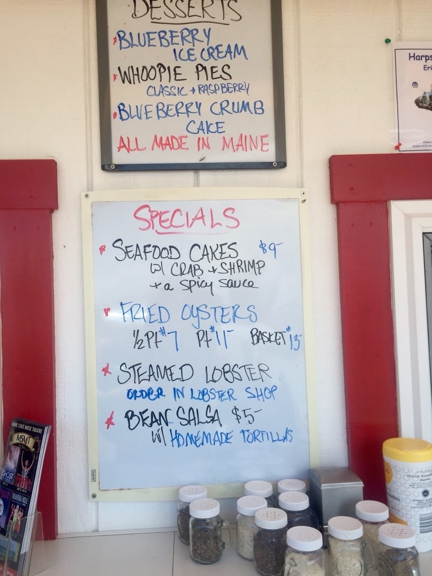 DESSERTS
BLUEBERRY
ICE CREAM
WHOOPIE PIES
CLASSIC + RASPBERRY
BLUEBERRY CRUMB
CAKE
ALL MADE IN MAINE
Harps
SPECIALS
SEAFOOD CAKES $9-
W/ CRAB + SHRIMP
+ a SPICY SAUCE
FRIED OYSTERS
1/2 Pt $7 Pt $11- BASKET $15-
STEAMED LOBSTER
ORDER IN LOBSTER SHOP
BEAN SALSA $5-
W/ HOMEMADE TORTILLAS
MSMT